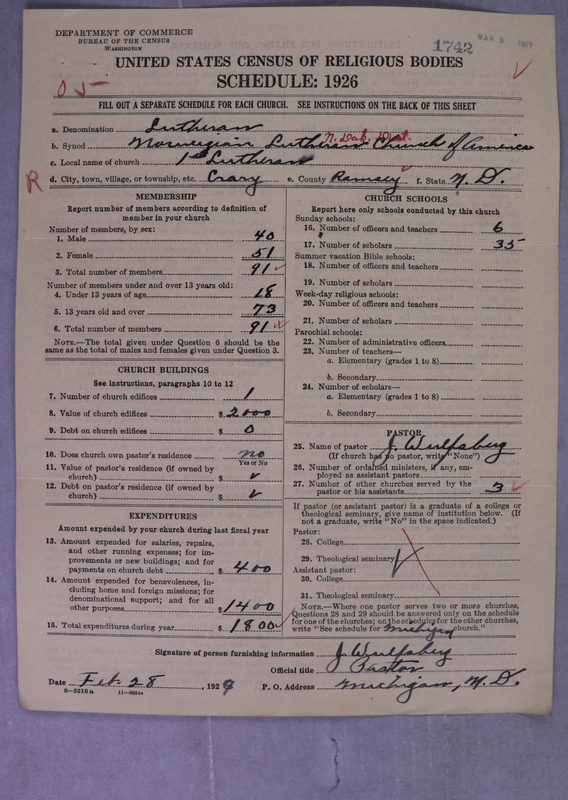 DEPARTMENT OF COMMERCE
BUREAU OF THE CENSUS
WASHINGTON
1742 MAR 9
UNITED STATES CENSUS OF RELIGIOUS BODIES
SCHEDULE: 1926
05-
FILL OUT A SEPARATE SCHEDULE FOR EACH CHURCH. SEE INSTRUCTIONS ON THE BACK OF THIS SHEET
a. Denomination Lutheran
N. Dak. Dist.
b. Synod Norwegian Lutheran Church of America
c. Local name of church 1st Lutheran
R
d. City, town, village, or township, etc. Crary e. County Ramsey f. State N. D.
MEMBERSHIP
Report number of members according to definition of member in your church
Number of members, by sex:
1. Male 40
2. Female 51
3. Total number of members 91
Number of members under and over 13 years old:
4. Under 13 years of age 18
5. 13 years old and over 73
6. Total number of members 91
NOTE.—The total given under Question 6 should be the same as the total of males and females given under Question 3.
CHURCH BUILDINGS
See instructions, paragraphs 10 to 12
7. Number of church edifices 1
8. Value of church edifices $2000
9. Debt on church edifices $ 0
10. Does church own pastor's residence? no
Yes or No
11. Value of pastor's residence (if owned by church) $ ✓
12. Debt on pastor's residence (if owned by church) $ ✓
EXPENDITURES
Amount expended by your church during last fiscal year
13. Amount expended for salaries, repairs, and other running expenses; for improvements or new buildings; and for payments on church debt $ 400
14. Amount expended for benevolences, including home and foreign missions; for denominational support; and for all other purposes $1400
15. Total expenditures during year $ 1800
CHURCH SCHOOLS
Report here only schools conducted by this church
Sunday schools:
16. Number of officers and teachers 6
17. Number of scholars 35
Summer vacation Bible schools:
18. Number of officers and teachers
19. Number of scholars
Week-day religious schools:
20. Number of officers and teachers
21. Number of scholars
Parochial schools:
22. Number of administrative officers
23. Number of teachers—
a. Elementary (grades 1 to 8)
b. Secondary
24. Number of scholars—
a. Elementary (grades 1 to 8)
b. Secondary
PASTOR
25. Name of pastor J. Wulfsberg
(If church has no pastor, write "None")
26. Number of ordained ministers, if any, employed as assistant pastors
27. Number of other churches served by the pastor or his assistants 3
If pastor (or assistant pastor) is a graduate of a college or theological seminary, give name of institution below. (If not a graduate, write "No" in the space indicated.)
Pastor:
28. College
29. Theological seminary
Assistant pastor:
30. College
31. Theological seminary
NOTE.—Where one pastor serves two or more churches, Questions 28 and 29 should be answered only on the schedule for one of the churches; on the schedules for the other churches, write "See schedule for Michigan church."
Signature of person furnishing information J Wulfsberg
Official title Pastor
Date Feb. 28, 192
P. O. Address Michigan, N. D.
8—5318 a